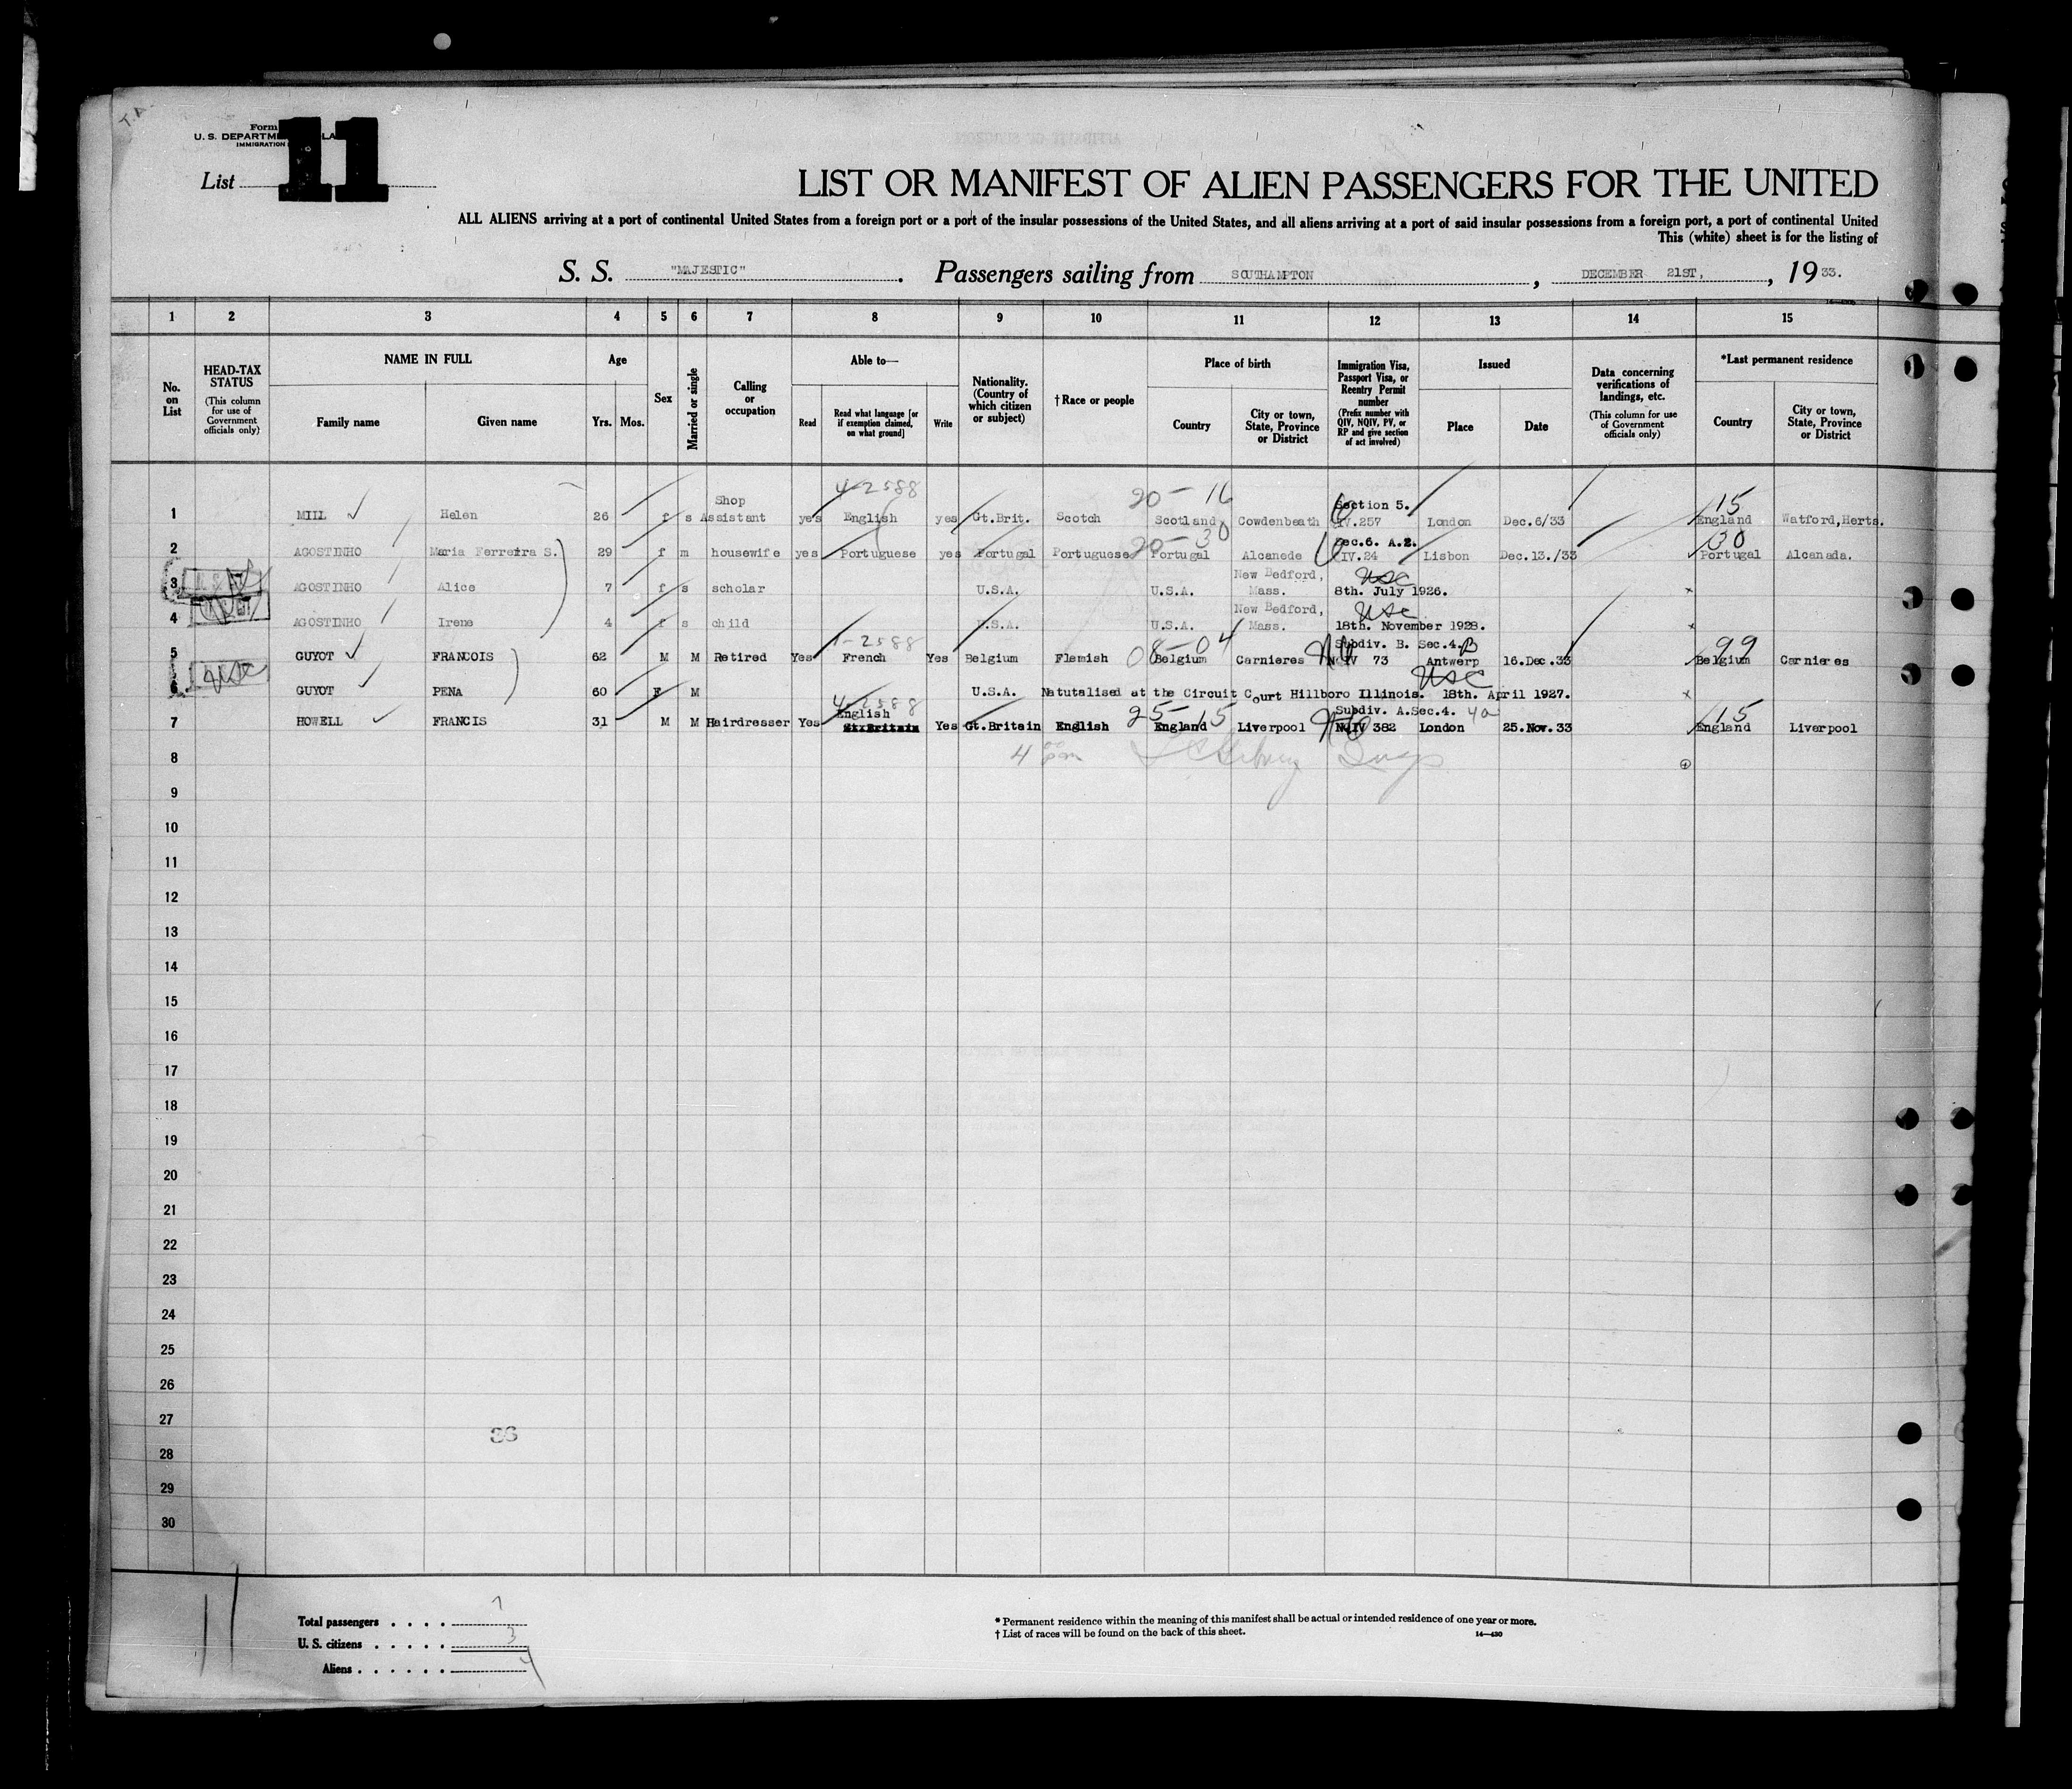 Form
U. S. DEPARTM LA
IMMIGRATION
List 11
LIST OR MANIFEST OF ALIEN PASSENGERS FOR THE UNITED
ALL ALIENS arriving at a port of continental United States from a foreign port or a port of the insular possessions of the United States, and all aliens arriving at a port of said insular possessions from a foreign port, a port of continental United
This (white) sheet is for the listing of
S. S. "MAJESTIC". Passengers sailing from SOUTHAMPTON, DECEMBER 21ST, , 19 33.
1 2 3 4 5 6 7 8 9 10 11 12 13 14 15
No. on List
HEAD-TAX STATUS (This column for use of Government officials only)
NAME IN FULL
Family name
Given name
Age
Yrs. Mos.
Sex
Married or single
Calling or occupation
Able to—
Read
Read what language [or if exemption claimed, on what ground]
Write
Nationality. (Country of which citizen or subject)
†Race or people
Place of birth
Country
City or town, State, Province or District
Immigration Visa, Passport Visa, or Reentry Permit number (Prefix number with QIV, NQIV, PV, or RP and give section of act involved)
Issued
Place
Date
Data concerning verifications of landings, etc. (This column for use of Government officials only)
*Last permanent residence
Country
City or town, State, Province or District
4-2588 20-16 15
Shop Section 5.
1 MILL Helen 26 f s Assistant yes English yes Gt.Brit. Scotch Scotland Cowdenbeath IV.257 London Dec.6/33 England Watford,Herts.
20-30 Sec.6. A.2. 30
2 AGOSTINHO Maria Ferreira S. 29 f m housewife yes Portuguese yes Portugal Portuguese Portugal Alcanede IV.24 Lisbon Dec.13./33 Portugal Alcanada.
New Bedford, USC
3 AGOSTINHO Alice 7 f s scholar U.S.A. U.S.A. Mass. 8th. July 1926. x
New Bedford, USC
4 AGOSTINHO Irene 4 f s child U.S.A. U.S.A. Mass. 18th. November 1928. x
1-2588 08-04 Subdiv. B. Sec.4.B 99
5 GUYOT FRANCOIS 62 M M Retired Yes French Yes Belgium Flemish Belgium Carnieres NQIV 73 Antwerp 16.Dec.33 Belgium Carnieres
USC
6 GUYOT PENA 60 F M U.S.A. Natutalised at the Circuit Court Hillboro Illinois. 18th. April 1927. x
4-2588 25-15 Subdiv. A.Sec.4. 4a 15
English
7 HOWELL FRANCIS 31 M M Hairdresser Yes Gt.Britain Yes Gt.Britain English England Liverpool NQIV 382 London 25.Nov.33 England Liverpool
8 4 pm
9
10
11
12
13
14
15
16
17
18
19
20
21
22
23
24
25
26
27
36
28
29
30
11
Total passengers . . . . 7
U. S. citizens . . . . . 3
Aliens . . . . . . 4
* Permanent residence within the meaning of this manifest shall be actual or intended residence of one year or more.
† List of races will be found on the back of this sheet.
14—430